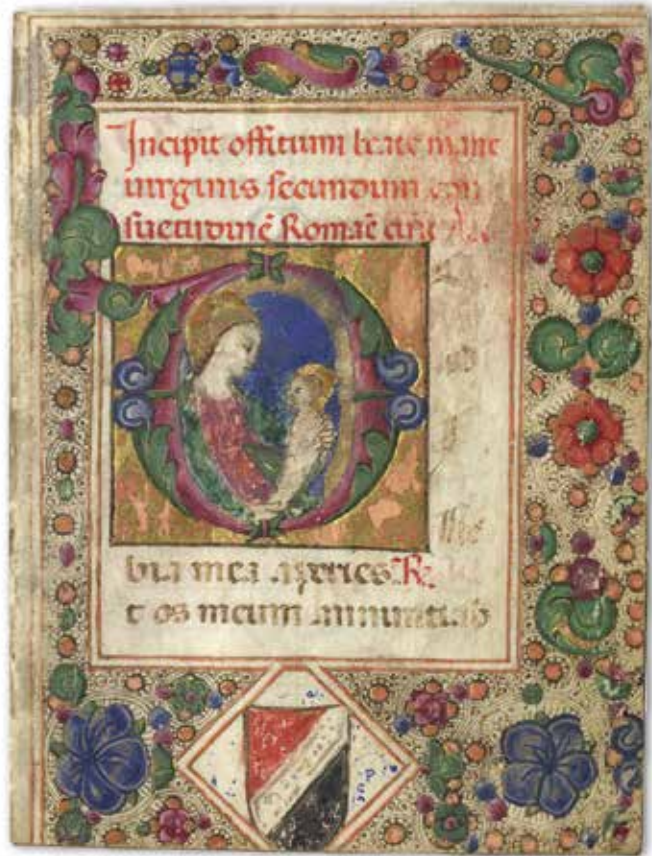 Incipit offitium beate marie
uirginis secundum con
suetudinē Romaē curie
bia mea aperies R
t os meum annuntiab